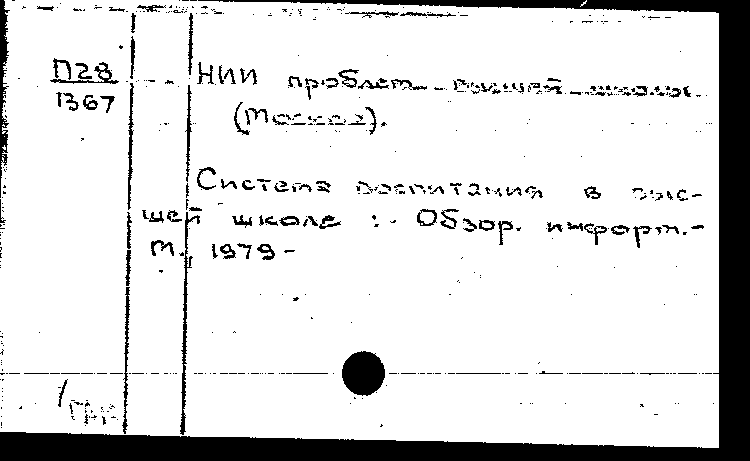 П28
1367
НИИ проблем высшей школы
(Москва).
Система воспитания в выс-
шей школе : Обзор. информ.-
М., 1979-